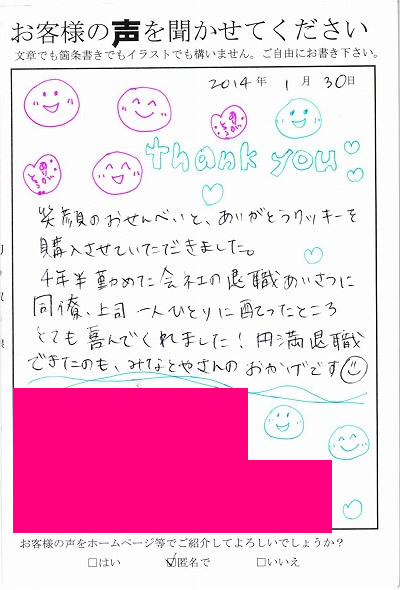 お客様の声を聞かせてください
文章でも箇条書きでもイラストでも構いません。ご自由にお書き下さい。
2014年 1月 30日
ありがとう
ありがとう
thank you
笑顔のおせんべいと、ありがとうクッキーを
購入させていただきました。
4年半勤めた会社の退職あいさつに
同僚、上司一人ひとりに配ったところ
とても喜んでくれました！円満退職
できたのも、みなとやさんのおかげです
お客様の声をホームページ等でご紹介してよろしいでしょうか？
□はい ☑匿名で □いいえ